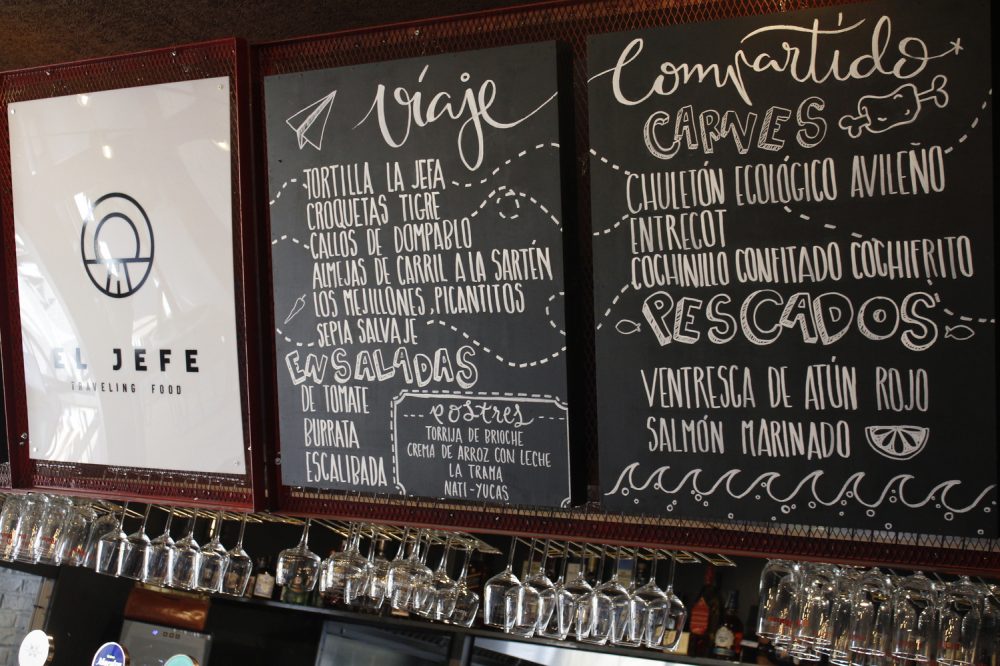 EL JEFE
TRAVELING FOOD
Viaje
TORTILLA LA JEFA
CROQUETAS TIGRE
CALLOS DE DOMPABLO
ALMEJAS DE CARRIL A LA SARTÉN
LOS MEJILLONES, PICANTITOS
SEPIA SALVAJE
ENSALADAS
DE TOMATE
BURRATA
ESCALIBADA
POSTRES
TORRIJA DE BRIOCHE
CREMA DE ARROZ CON LECHE
LA TRAMA
NATI-YUCAS
Compartido
CARNES
CHULETÓN ECOLÓGICO AVILEÑO
ENTRECOT
COCHINILLO CONFITADO COCHIFRITO
PESCADOS
VENTRESCA DE ATÚN ROJO
SALMÓN MARINADO